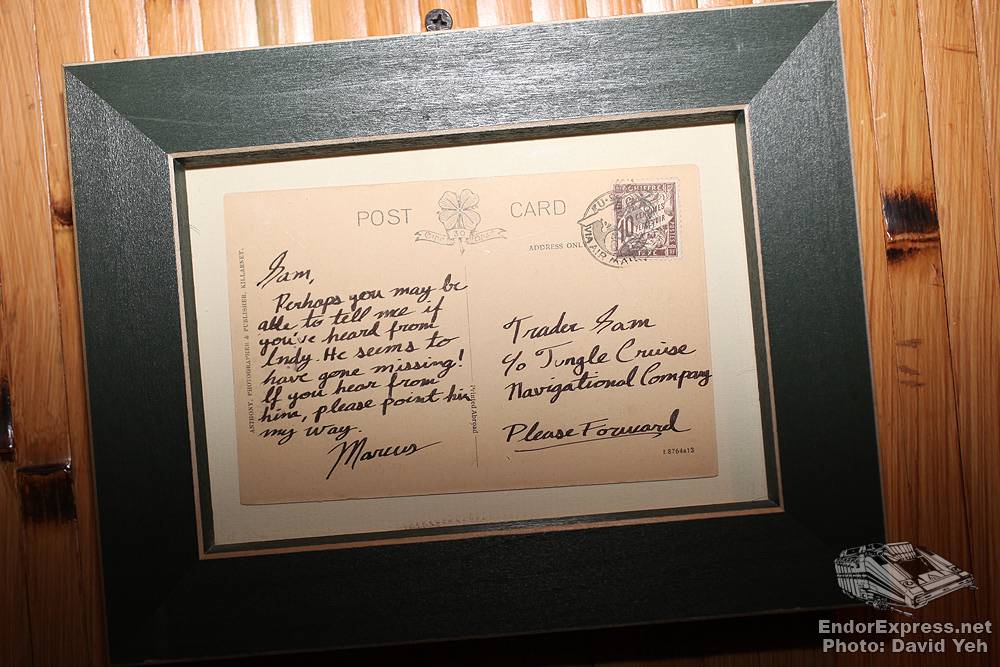 POST CARD
ADDRESS ONLY
VIA AIR MAIL
CHIFFRE
10
30
ANTHONY, PHOTOGRAPHER & PUBLISHER, KILLARNEY.
Sam,
Perhaps you may be
able to tell me if
you've heard from
Indy. He seems to
have gone missing!
If you hear from
him, please point him
my way.
Marcus
Printed Abroad
Trader Sam
c/o Jungle Cruise
Navigational Company
Please Forward
EndorExpress.net
Photo: David Yeh